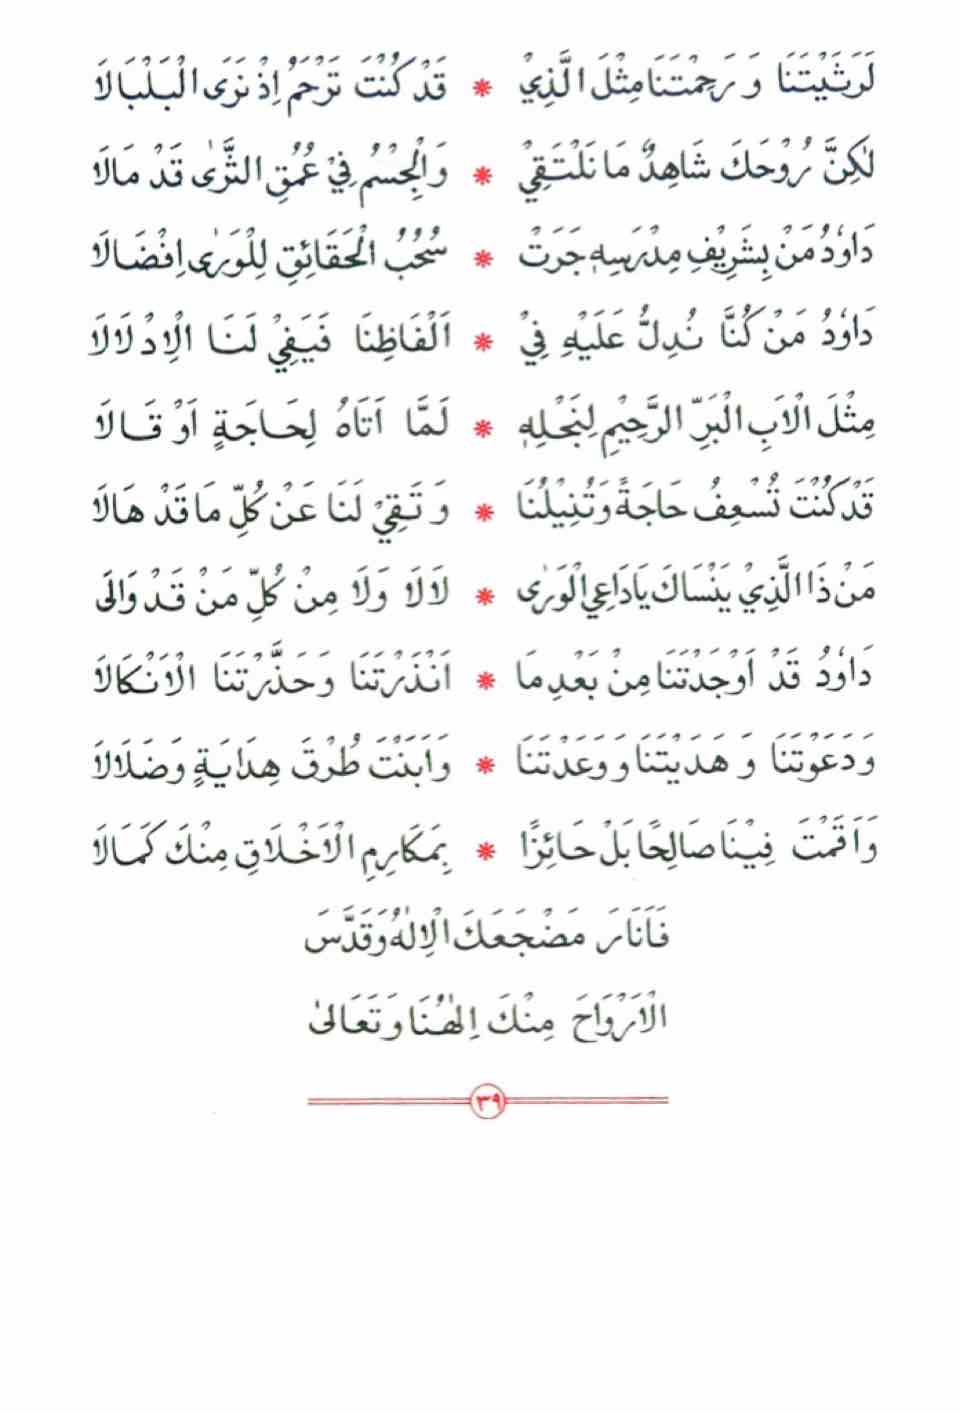 لَرَثَيْتَنَا وَ رَحِمْتَنَا مِثْلَ الَّذِيْ * قَدْ كُنْتَ تَرْحَمُ اِذْ نَرَى الْبَلْبَالَا
لٰكِنَّ رُوْحَكَ شَاهِدٌ مَا نَلْتَقِيْ * وَالْجِسْمُ فِيْ عُمُقِ الثَّرٰى قَدْ مَالَا
دَاوٗدُ مَنْ بِشَرِيْفِ مِدْرَسِهٖ جَرَتْ * سُحُبُ الْحَقَائِقِ لِلْوَرٰى اِفْضَالَا
دَاوٗدُ مَنْ كُنَّا نُدِلُّ عَلَيْهِ فِيْ * اَلْفَاظِنَا فَيَفِيْ لَنَا الْاِدْلَالَا
مِثْلَ الْاَبِ الْبَرِّ الرَّحِيْمِ لِنَجْلِهٖ * لَمَّا اَتَاهُ لِحَاجَةٍ اَوْ قَالَا
قَدْ كُنْتَ تُسْعِفُ حَاجَةً وَتُنِيْلُنَا * وَ تَقِيْ لَنَا عَنْ كُلِّ مَا قَدْ هَالَا
مَنْ ذَا الَّذِيْ يَنْسَاكَ يَا دَاعِي الْوَرٰى * لَا لَا وَلَا مِنْ كُلِّ مَنْ قَدْ وَالَى
دَاوٗدُ قَدْ اَوْجَدْتَنَا مِنْ بَعْدِ مَا * اَنْذَرْتَنَا وَحَذَّرْتَنَا الْاَنْكَالَا
وَدَعَوْتَنَا وَ هَدَيْتَنَا وَ وَعَدْتَنَا * وَاَبَنْتَ طُرْقَ هِدَايَةٍ وَضَلَالَا
وَاَقَمْتَ فِيْنَا صَالِحًا بَلْ حَائِزًا * بِمَكَارِمِ الْاَخْلَاقِ مِنْكَ كَمَالَا
فَاَنَارَ مَضْجَعَكَ الْاِلٰهُ وَقَدَّسَ
الْاَرْوَاحَ مِنْكَ اِلٰهُنَا وَتَعَالىٰ
٣٩